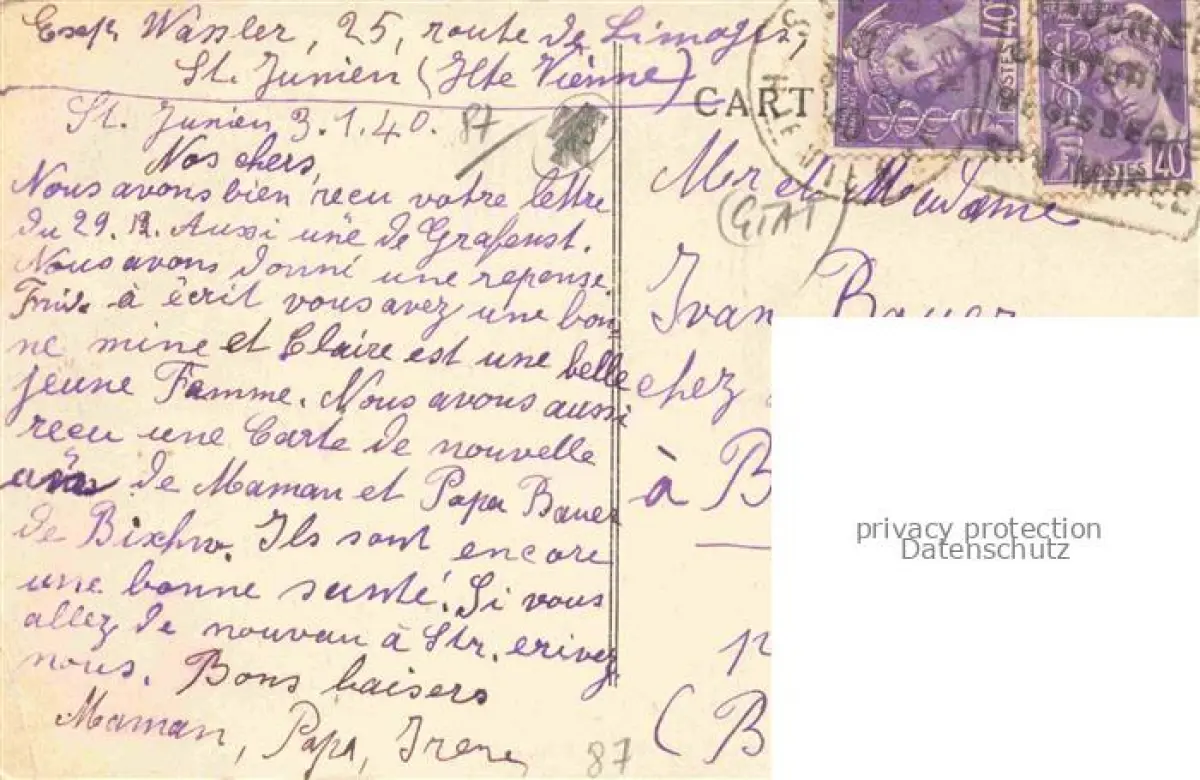 Wassler, 25, route de Limoges,
St. Junien (Hte Vienne)
St. Junien 3.1.40.
87
Nos chers,
Nous avons bien reçu votre lettre
du 29.12. Aussi une de
Nous avons donné une reponse.
à écrit vous avez une bon-
ne mine et Claire est une belle
jeune Famme. Nous avons aussi
reçu une Carte de nouvelle
de Maman et Papa Bauer
de Ils sont encore
une bonne santé. Si vous
allez de nouvau à Str. erivez
nous. Bons baisers
Maman, Papa, Irene
87
CART
40
POSTES
40
POSTES
MUSEE
Mer et Madame
(GTAT)
Ivan Bauer
chez
à B
(B
privacy protection
Datenschutz